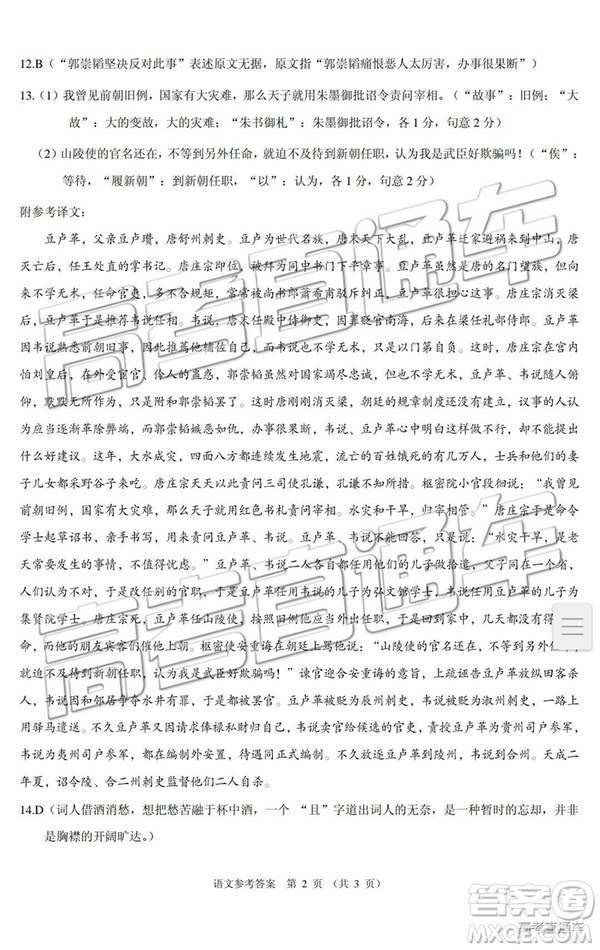 12.B（“郭崇韬坚决反对此事”表述原文无据，原文指“郭崇韬痛恨恶人太厉害，办事很果断”）
13.（1）我曾见前朝旧例，国家有大灾难，那么天子就用朱墨御批诏令责问宰相。（“故事”：旧例；“大
故”：大的变故，大的灾难；“朱书御札”：朱墨御批诏令，各 1 分，句意 2 分）
（2）山陵使的官名还在，不等到另外任命，就迫不及待到新朝任职，认为我是武臣好欺骗吗！（“俟”：
等待，“履新朝”：到新朝任职，“以”：认为，各 1 分，句意 2 分）
附参考译文：
豆卢革，父亲豆卢瓒，唐舒州刺史。豆卢革为世代名族，唐末天下大乱，豆卢革迁家避祸来到中山，唐
灭亡后，任王处直的掌书记。唐庄宗即位，被拜为同中书门下平章事。豆卢革虽然是唐的名门望族，但向
来不学无术，任命官吏，多有不合规矩的，常常被尚书郎萧希甫驳斥纠正，豆卢革以此为患。唐庄宗消灭梁
后，豆卢革于是推荐韦说任相。韦说，唐末任殿中侍御史，因罪贬官南海，后来在梁任礼部侍郎。豆卢革
因韦说熟悉前朝旧事，因此推荐他辅佐自己，而韦说也不学无术，只是以出身门第自夸。唐庄宗在宫内
怕刘皇后，在外受宦官、伶人的蛊惑，郭崇韬虽然对国家竭尽忠诚，但也不学无术，豆卢革、韦说随人俯
仰，默默无闻，只是附和郭崇韬罢了。这时唐刚刚消灭梁，朝廷的规矩制度还没有建立，议事的人认
为应当逐渐革除弊端，而郭崇韬嫉恶如仇，办事很果断，韦说、豆卢革心里知道不能这样，却不能说
什么好的建议。这一年，大水成灾，四面八方都连续发生地震，流亡的百姓饿死的有几万人，士兵和他们的妻
子儿女都采野谷子来吃。唐庄宗天天以此责问三司使孔谦，孔谦不知怎么办。枢密院小官段徊说：“我曾见
前朝旧例，国家有大灾难，那么天子就用红色书札责问宰相。水灾干旱，归宰相管。”唐庄宗于是命令
学士起草诏书，亲手书写，用来责问豆卢革、韦说。豆卢革、韦说不能回答，只是说：“水灾干旱，是老
天常要发生的事情，不值得忧虑。”豆卢革、韦说二人各自任用他们的儿子做拾遗，父子在同一个省，
人们认为不对，于是改任别的官职。豆卢革任用韦说的儿子为弘文馆学士，韦说任用豆卢革的儿子为
集贤院学士。唐庄宗死，豆卢革任山陵使，按照旧例他应当出任镇守一方，豆卢革在家中等待命令，几天没有得到
任命，而他的朋友宾客们催他上朝。枢密使安重诲在朝堂上骂他说：“山陵使的官名还在，不等到另外任
命，就迫不及待到新朝任职，认为我是武臣好欺骗吗！”谏官迎合安重诲的意思，上疏诬告豆卢革纵田客杀
人，韦说因和邻居争夺井水获罪，于是都被罢官。豆卢革被贬为辰州刺史，韦说被贬为溆州刺史，一路上
用驿马遣送。不久豆卢革因请求俸禄私自归自己，韦说因卖官给候选的官吏，又贬豆卢革为费州司户参军，
韦说为夷州司户参军，都在编制外安置，于是流放豆卢革到陵州、韦说到合州。天成二
年夏，诏令陵、合二州刺史监督他们二人自杀。
14.D（词人借酒消愁，想把愁苦融于杯中酒，一个 “且”字道出词人的无奈，是一种暂时的忘却，并非
是胸襟的开阔旷达。）
语文参考答案 第 2 页 （共 3 页）
高考直通车
高考直通车
答案圈
高考直通车